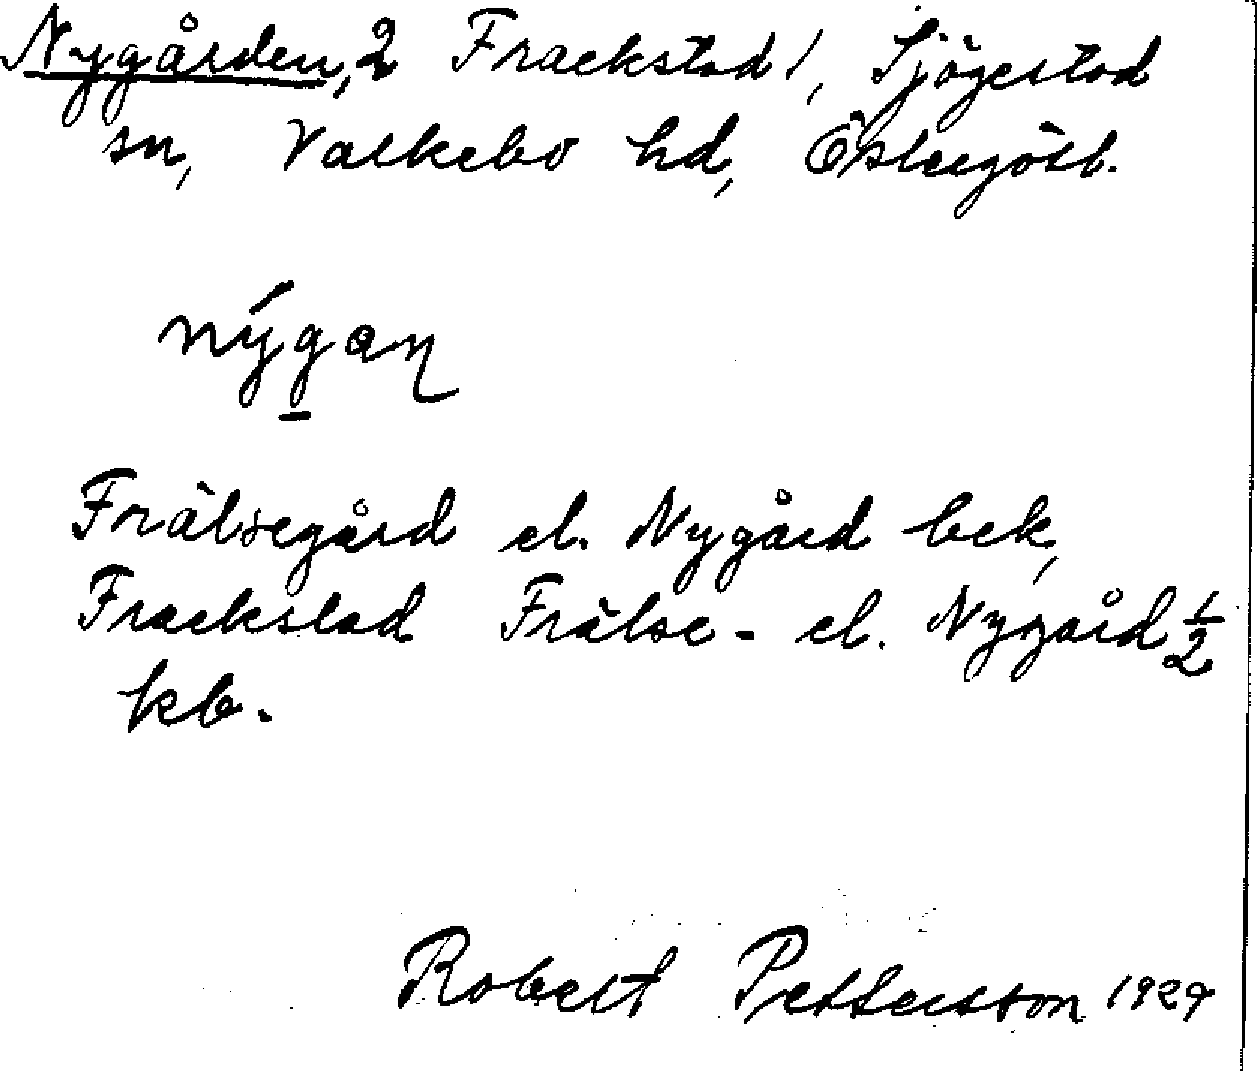 Nygården, 2 Frackstad 1, Sjögestad
sn, Valkebo hd, Östergötl.
nýgaɳ
Frälsegård el. Nygård bek,
Frackstad Frälse- el. Nygård 1/2
kb.
Robert Pettersson 1929